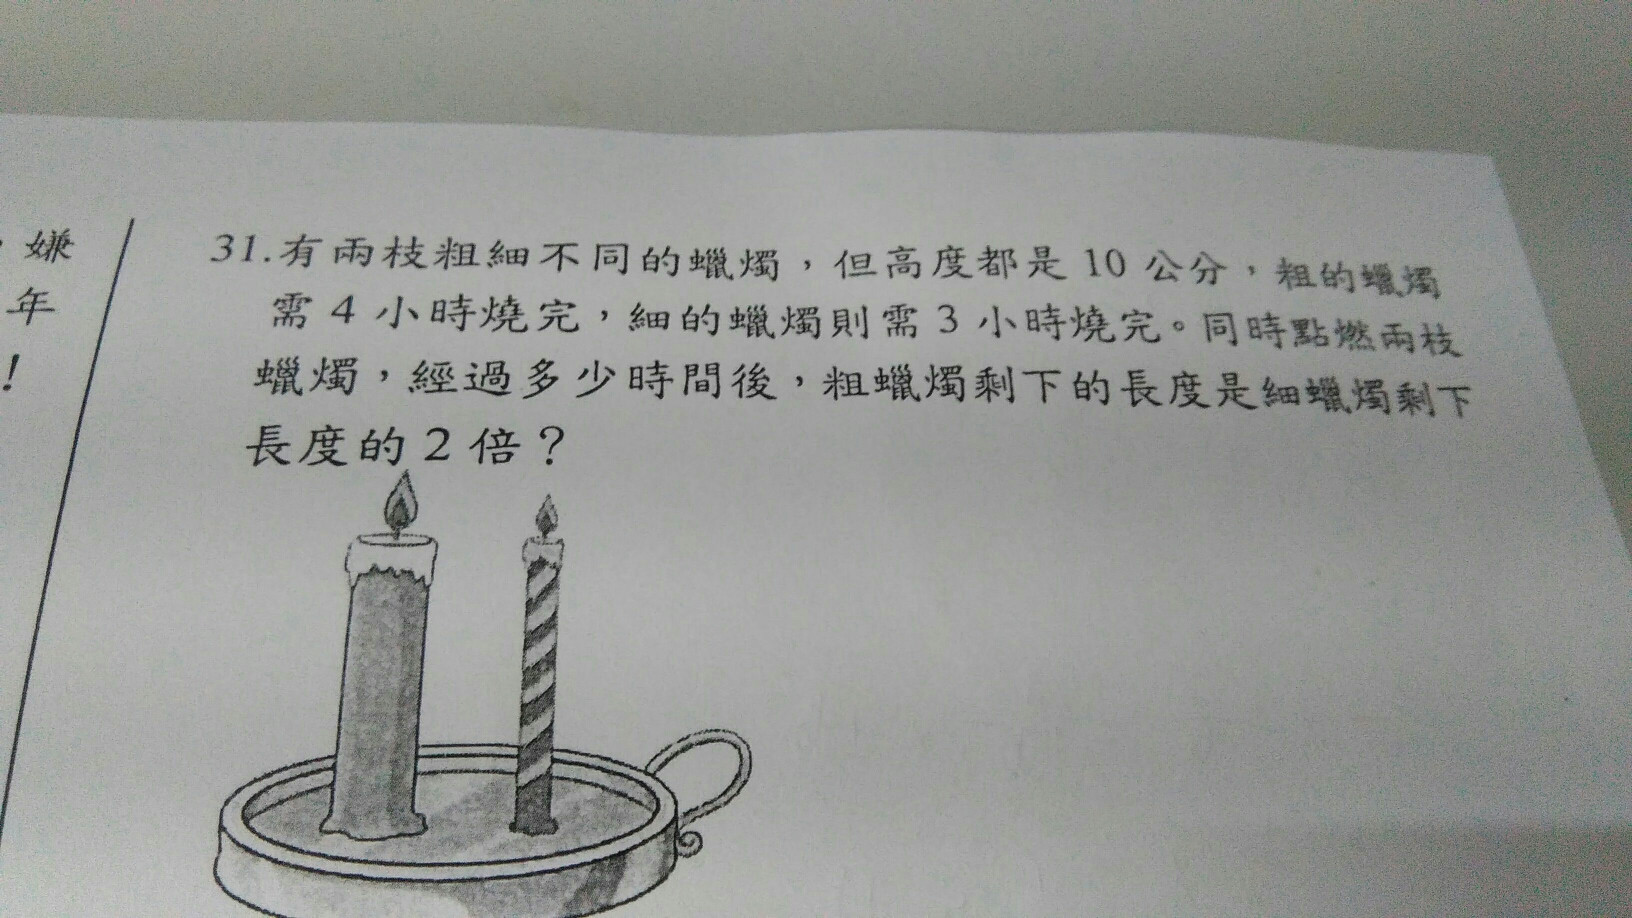 嫌
年
！
31.有兩枝粗細不同的蠟燭，但高度都是 10 公分，粗的蠟燭
需 4 小時燒完，細的蠟燭則需 3 小時燒完。同時點燃兩枝
蠟燭，經過多少時間後，粗蠟燭剩下的長度是細蠟燭剩下
長度的 2 倍？